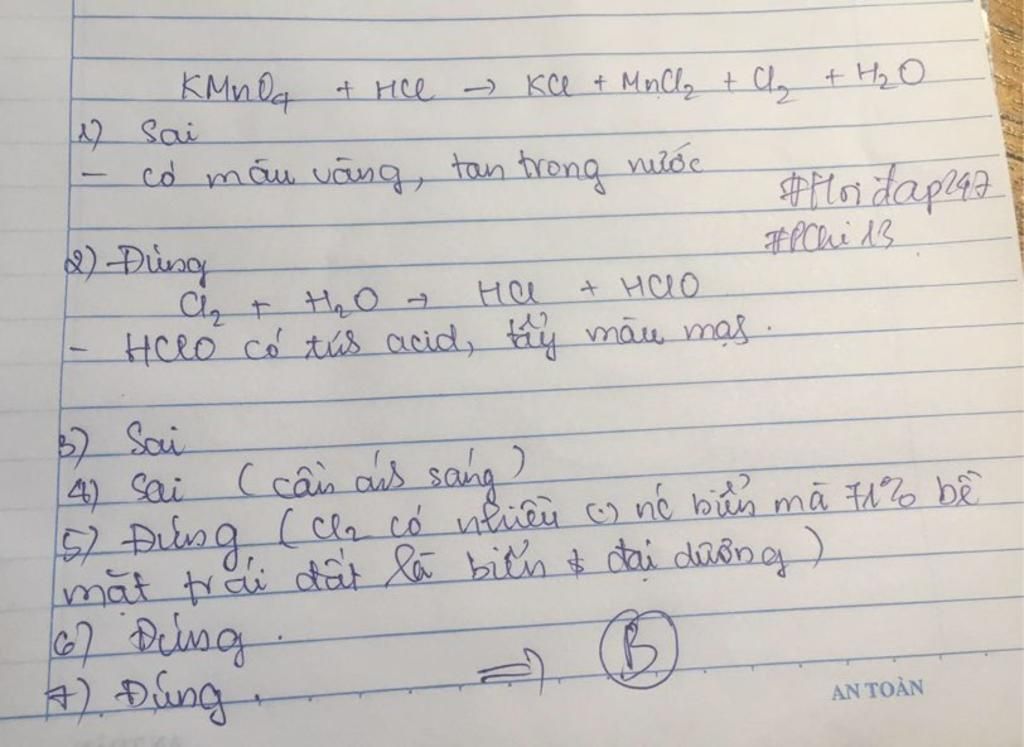 KMnO4 + HCl → KCl + MnCl2 + Cl2 + H2O
1) Sai
- có màu vàng, tan trong nước
#Hoidap247
#PChi13
2) Đúng
Cl2 + H2O → HCl + HClO
- HClO có tính acid, tẩy màu mạnh.
3) Sai
4) Sai (cần ánh sáng)
5) Đúng (Cl2 có nhiều (.) nc biển mà 71% bề
mặt trái đất là biển & đại dương)
6) Đúng.
7) Đúng.
⇒ B
AN TOÀN